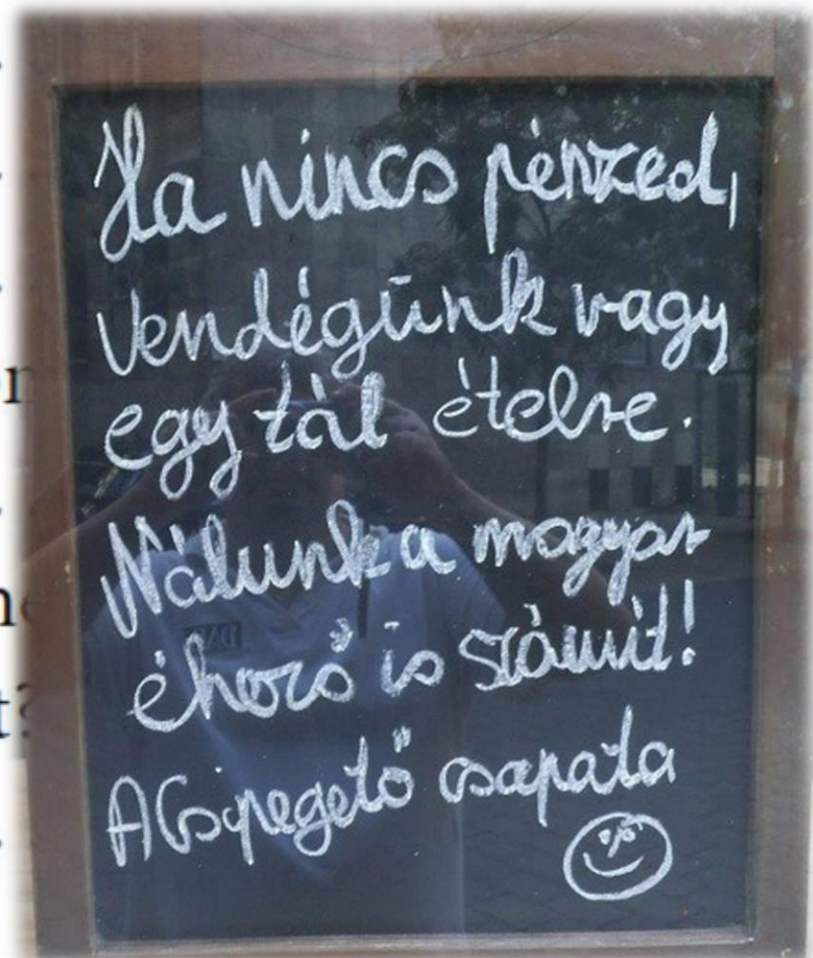 Ha nincs pénzed,
Vendégünk vagy
egy tál ételre.
Nálunk a magyar
éhező is számít!
A Csipegető csapata